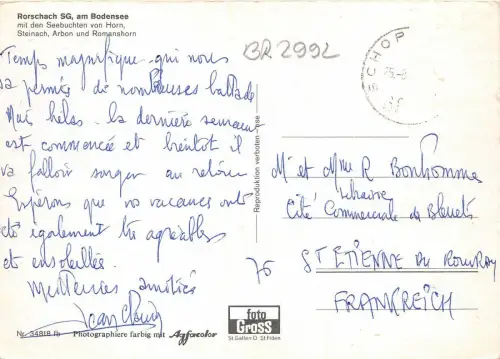 Rorschach SG, am Bodensee
mit den Seebuchten von Horn,
Steinach, Arbon und Romanshorn
BR2992
SCHOP
Temps magnifique qui nous
a permis de nombreuses ballades
Mais hélas la dernière semaine
est commencée et bientôt il
va falloir songer au retour
Espérons que vos vacances ont
été également très agréables
et ensoleillées.
Meilleures amitiés
Reproduktion verboten
Mr et Mme R Bonhomme
Libraire
Cité Commerciale de Bleuets
76 ST ETIENNE DU ROUVRAY
FRANKREICH
foto
GROSS
St.Gallen O St.Fiden
Nr. 34818 Photographiere farbig mit Agfacolor